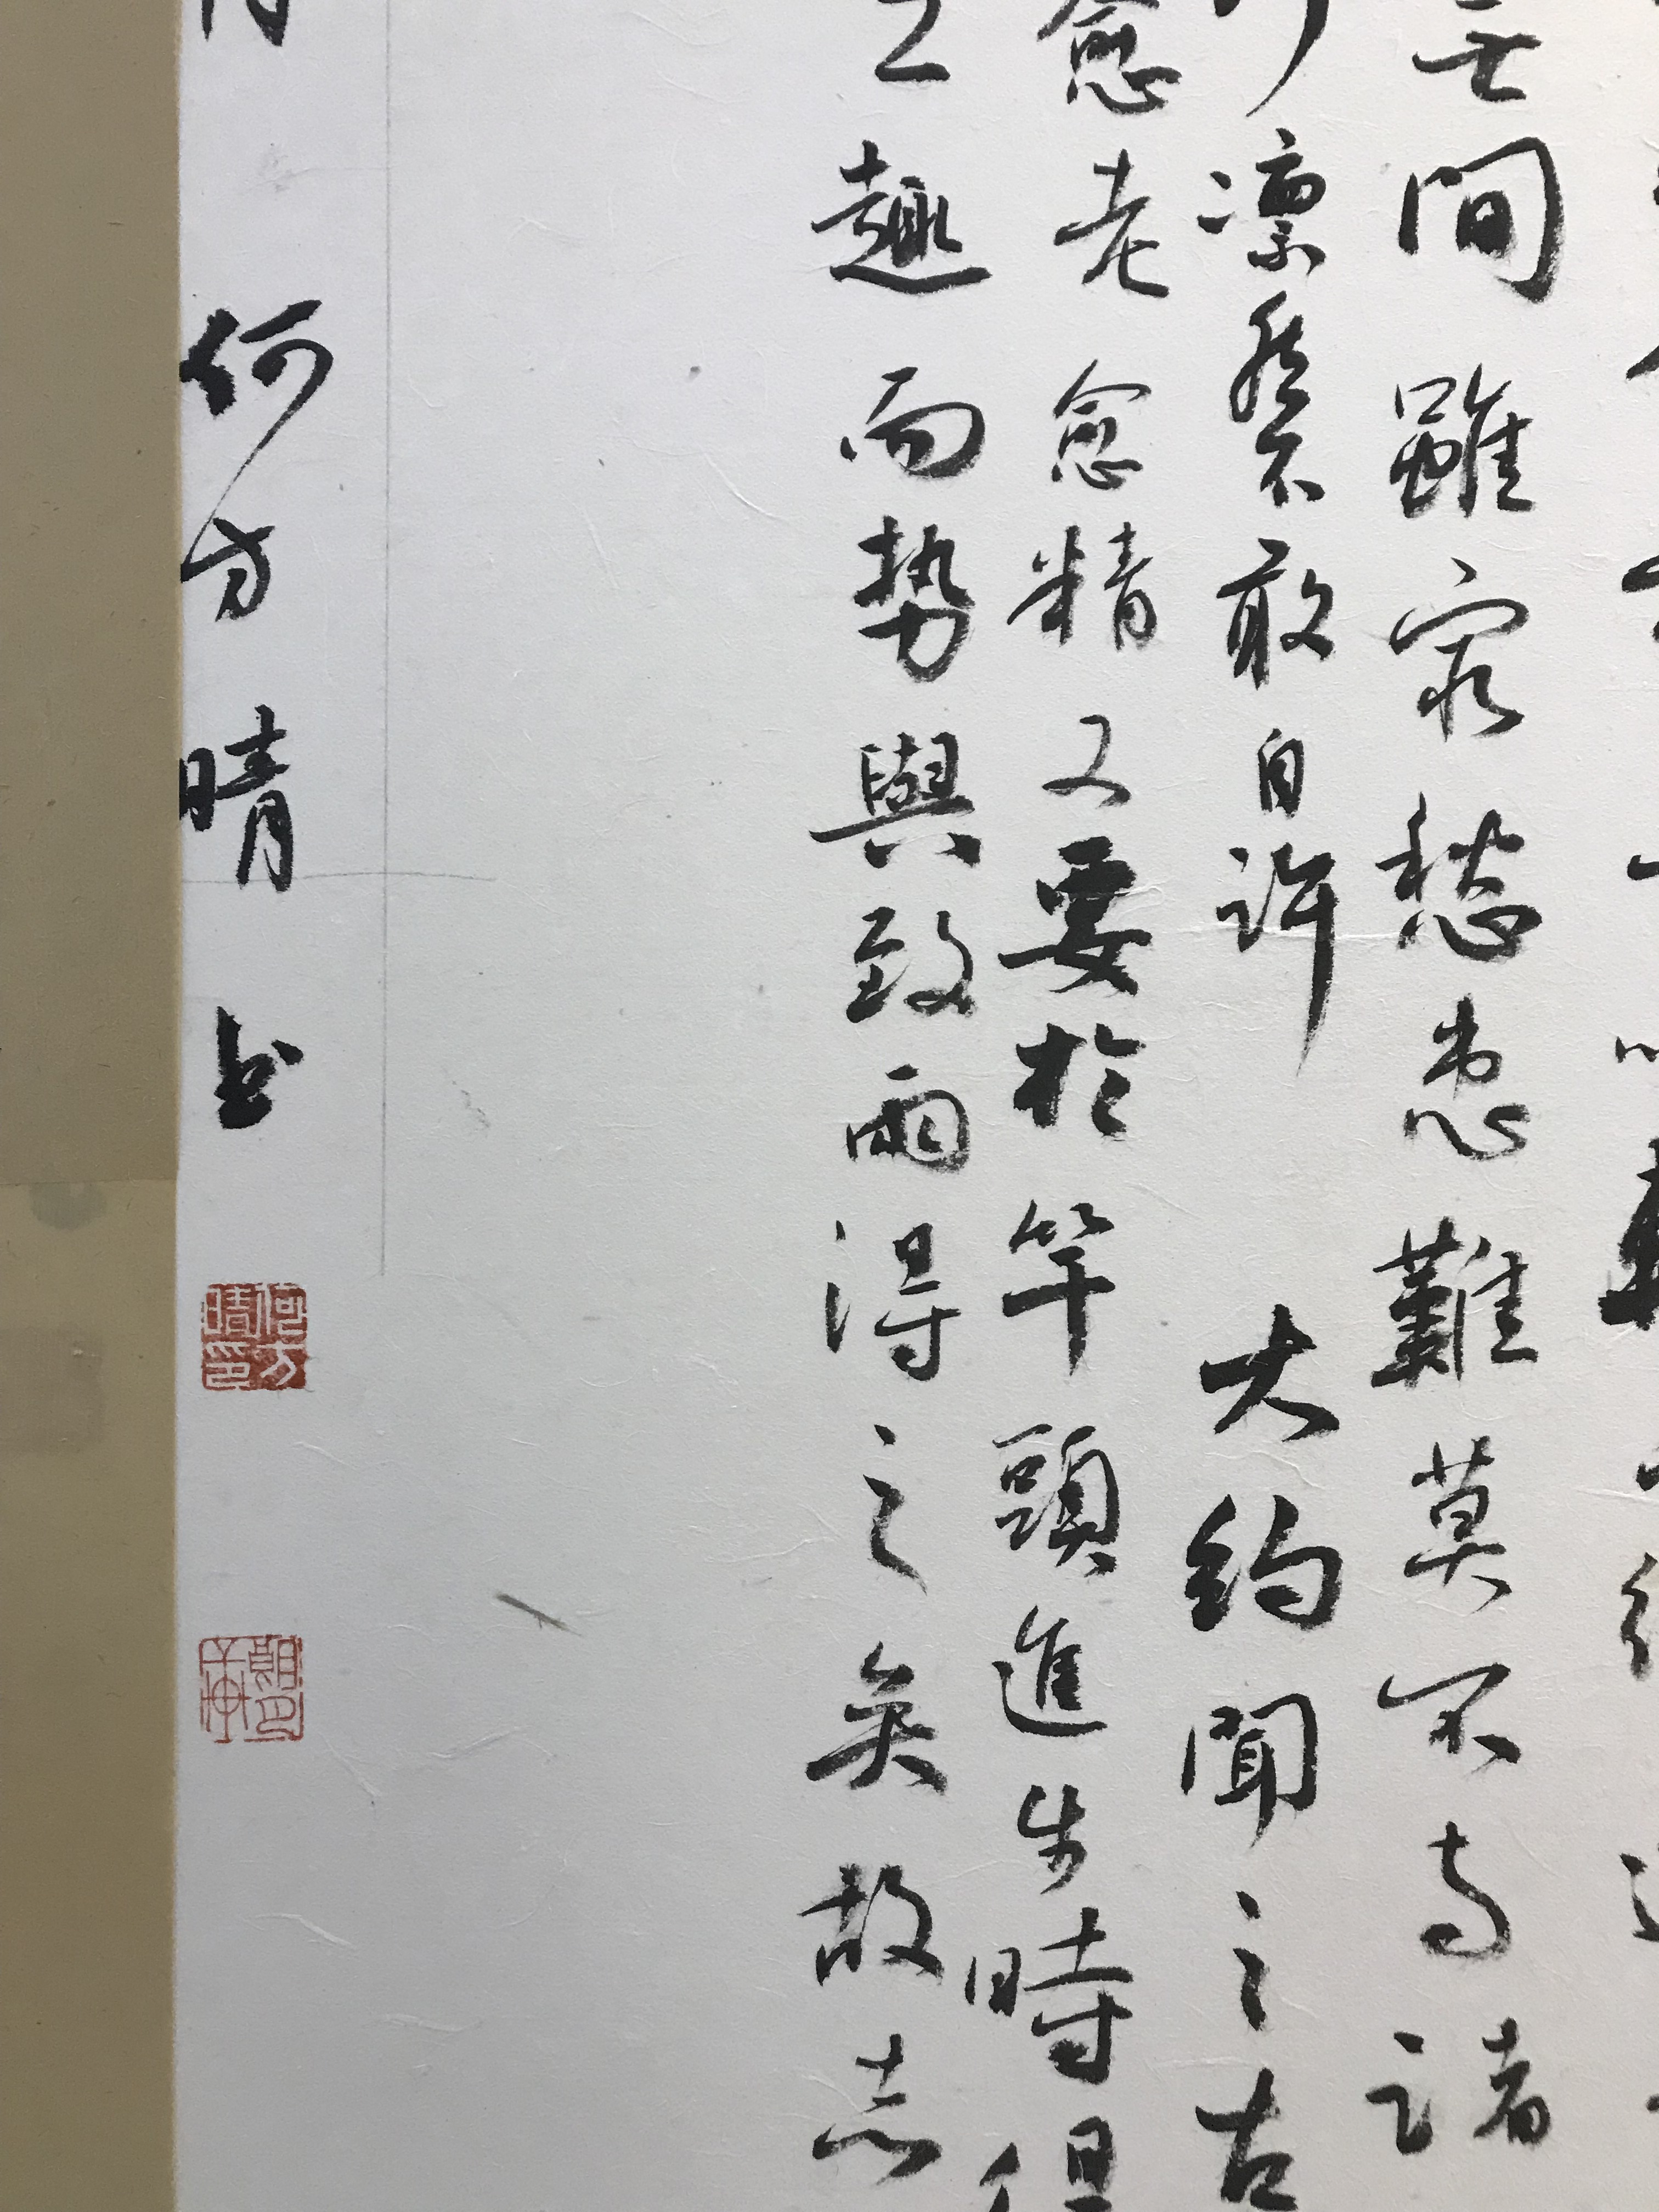 間雖窮愁患難莫不與諸
凛然不敢自許 大約聞之古
愈老愈精又要於竿頭進步時但
趣而勢與致兩得之矣故志
何方晴書
何方晴印